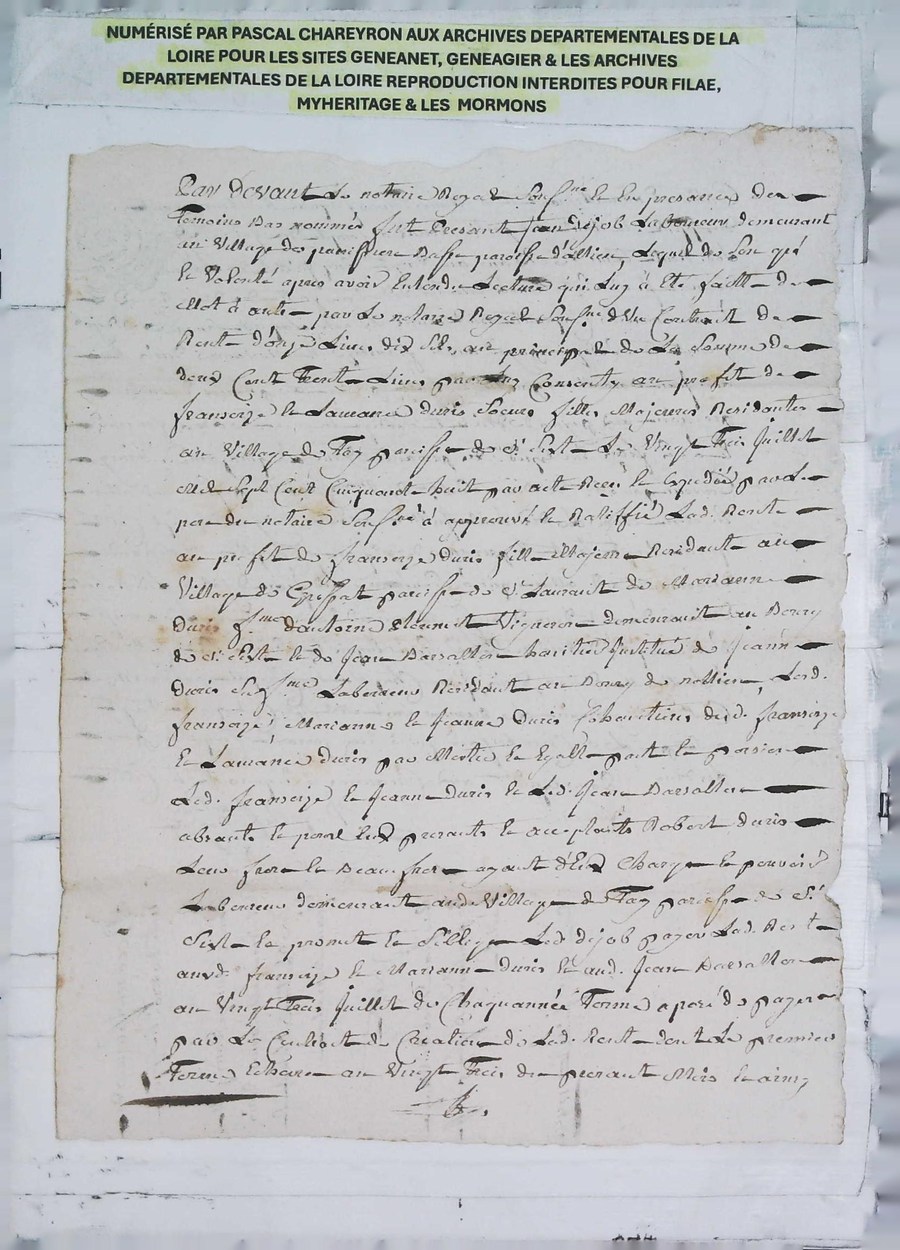 NUMÉRISÉ PAR PASCAL CHAREYRON AUX ARCHIVES DEPARTEMENTALES DE LA
LOIRE POUR LES SITES GENEANET, GENEAGIER & LES ARCHIVES
DEPARTEMENTALES DE LA LOIRE REPRODUCTION INTERDITES POUR FILAE,
MYHERITAGE & LES MORMONS
Par Devant Le notaire Royal Sous.ne Et En presance des
Temoins Bas nommés fut Presant Jean dejob Laboureur demeurant
au Village de Basse paroisse d'ailleu, Lequel de Son gré
Et Volonté apres avoir Entendu Lecture qui Luy à Eté faitte de
Mot à autre par Le notaire Royal Sous.ne d'Un Contrait de
Rente d'onze Livres dix Sols, au principal de La Somme de
deux Cent Trente Livres par Luy Consenty au profit de
fransoize Et Lamance duris Soeurs filles Majeures Residantes
au Village de Fay paroisse de St Sixte Le Vingt Trois Juillet
Mil Sept Cent Cinquante huit par acte Receu Et Expedié par Le
pere du notaire Sous.né à approuvé Et Ratiffié Lad. Rente
au profit de fransoize duris fille Majeure Residante au
Village de paroisse de St Laurant de Marianne
Duris f.me d'antoine Vigneron demeurant au Bourg
de St Sixte Et de Jean Barsallon haritier Institué de Jeanne
duris Sa f.me Laboureur Residant au Bourg de nollieu, Lesd.
fransoize, Marianne Et Jeanne Duris desd. fransoize
Et Lamance duris par Moitié Et Egalle part Et portion
Lesd. fransoize Et Jeanne duris Et Led. Jean Barsallon
absants Et pour Eux presants Et acceptants Robert duris
Leur frere Et Beaufrere ayant d'Eux Charge Et pouvoir
Laboureur demeurant aud. Village de Fay paroisse de St
Sixte Et promet Et S'oblige Led. dejob payer Lad. Rente
auxd. fransoize Et Marianne duris Et aud. Jean Barsallon
au Vingt Trois Juillet de Chaquannée Terme aposé de payer
par Le Contrait de Creation de Lad. Rente dont Le premier
Terme Echeura au Vingt Trois du presant Mois Et ainsy